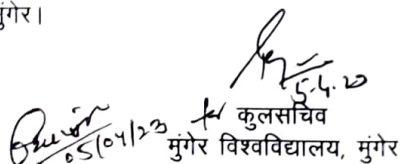 मुंगेर।
5.4.23
05/04/23 for कुलसचिव
मुंगेर विश्वविद्यालय, मुंगेर